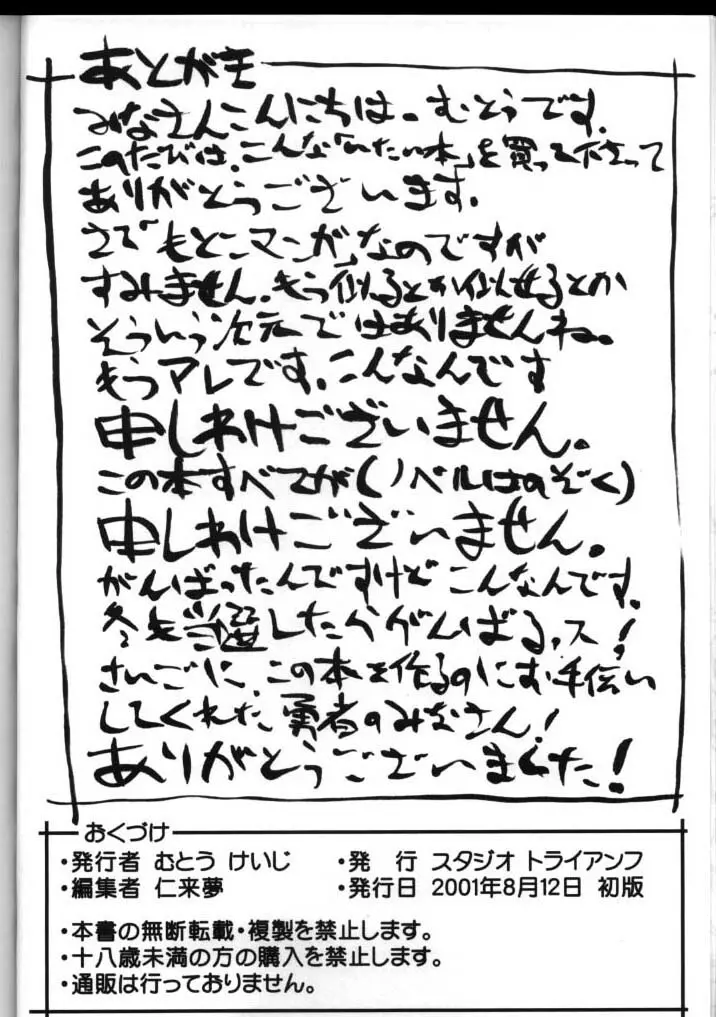 あとがき
みなさんこんにちは。むとうです。
このたびは、こんな「いたい本」を買って下さって
ありがとうございます。
さて「もとこマンガ」なのですが
すみません。もう似るとか似せるとか
そういう次元ではありませんね。
もうアレです。こんなんです
申しわけございません。
この本すべてが(ノベルはのぞく)
申しわけございません。
がんばったんですけどこんなんです。
冬も当選したらがんばるッス!
さいごに、この本を作るのにお手伝い
してくれた勇者のみなさん!
ありがとうございました!
おくづけ
・発行者 むとう けいじ ・発 行 スタジオ トライアンフ
・編集者 仁来夢 ・発行日 2001年8月12日 初版
・本書の無断転載・複製を禁止します。
・十八歳未満の方の購入を禁止します。
・通販は行っておりません。